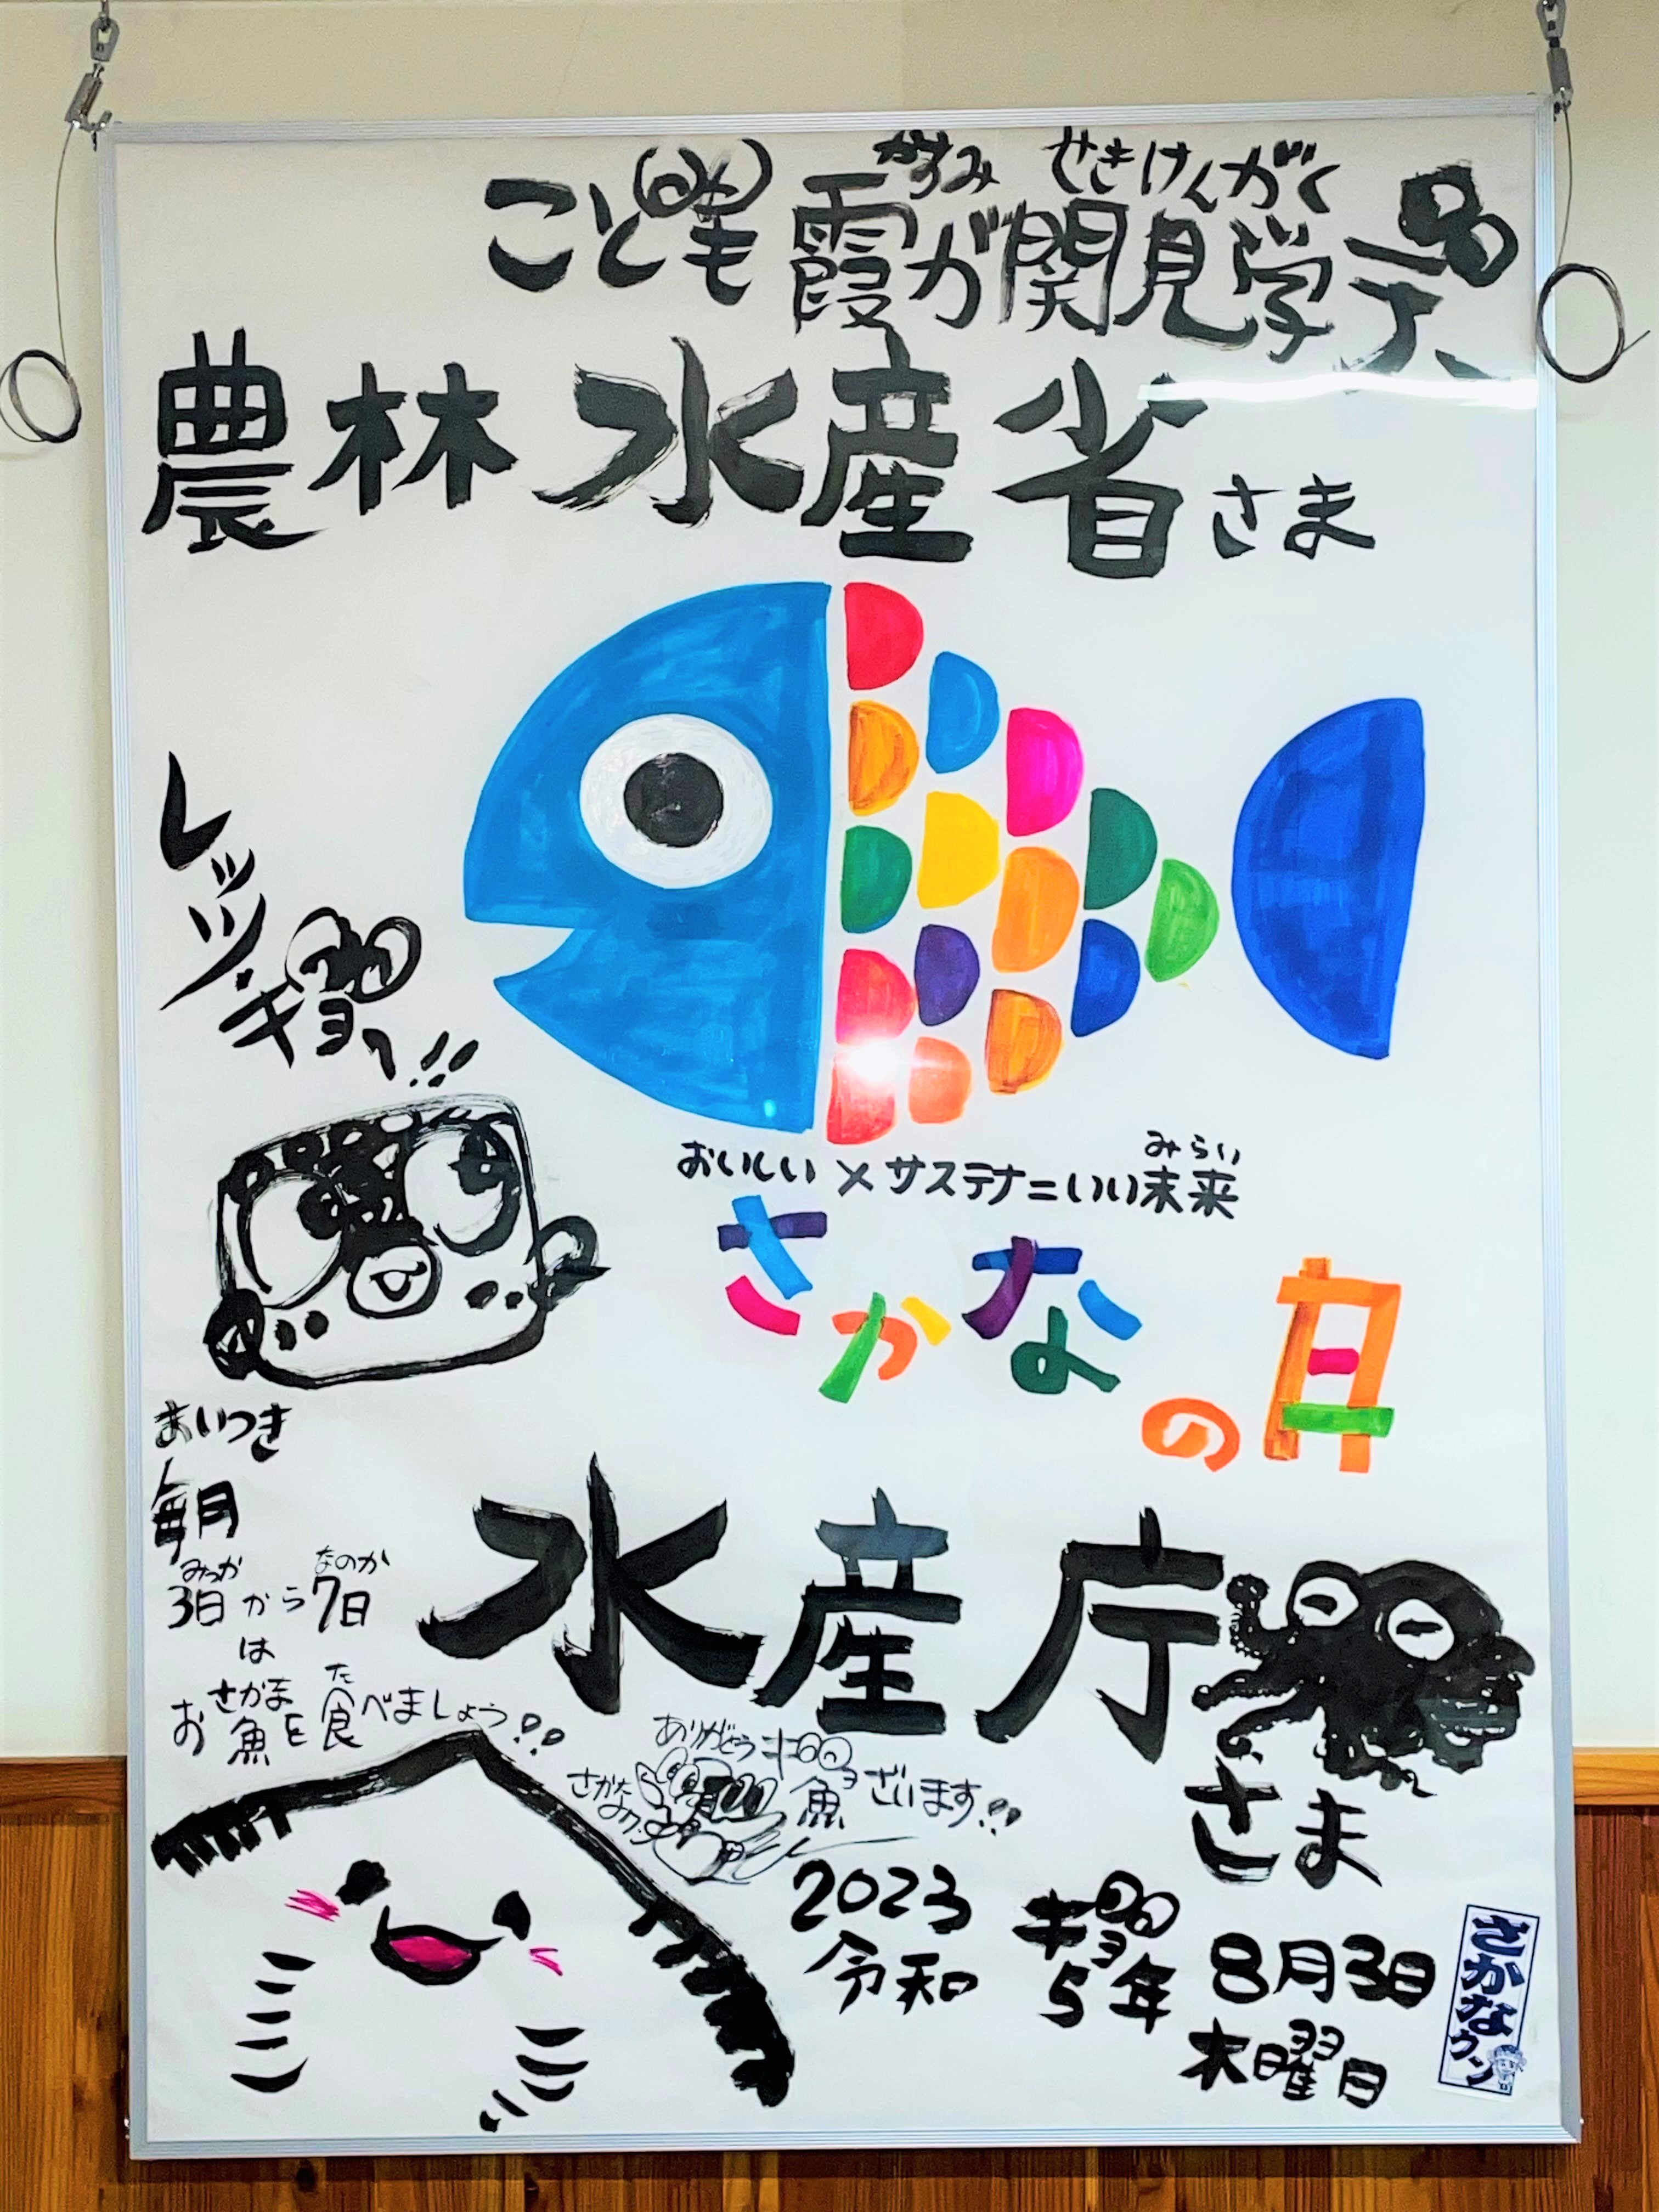 かすみ せきけんがく
こども霞が関見学
農林水産省さま
レッツ・ギョ〜!!
みらい
おいしい×サステナ=いい未来
さかなの日
まいつき
毎月
みっか なのか
3日から7日
は
さかな た
お魚を食べましょう!!
水産庁
さま
ありがとうギョ
さかなクン 魚ざいます!!
2023
令和 ギョ5年 8月3日
木曜日
さかなクン